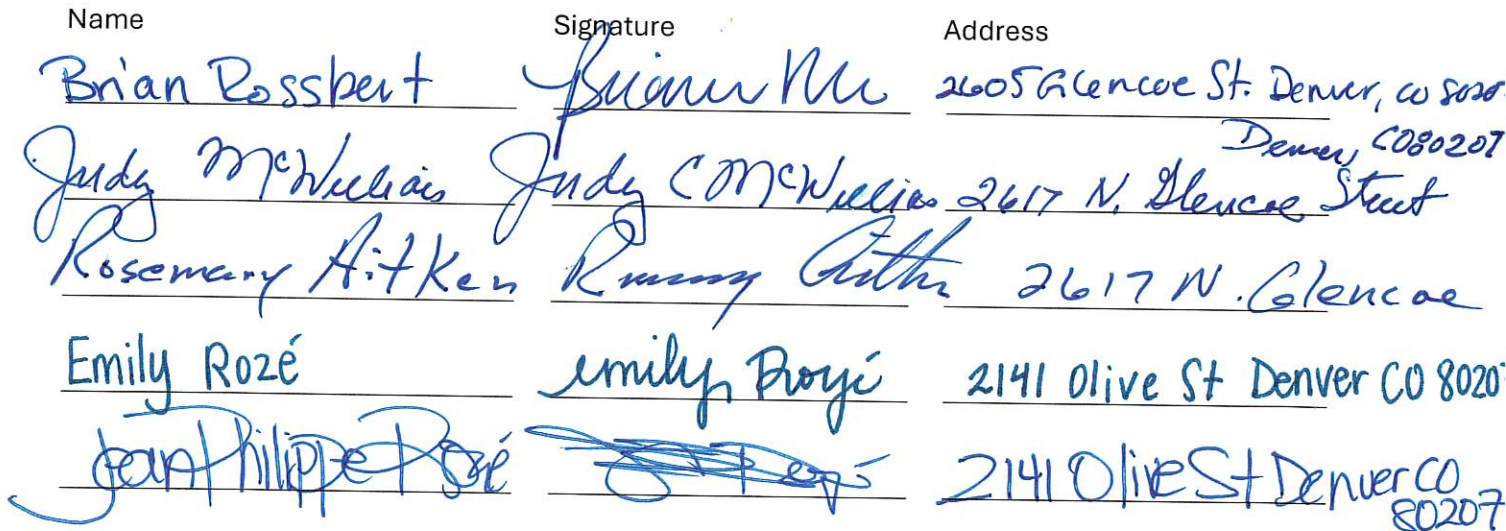 Name Signature Address
Brian Rossbert 2605 Glencoe St. Denver, CO
Denver, CO 80207
Judy McWilliams Judy C McWilliams 2617 N. Glencoe Street
Rosemary Aitken 2617 N. Glencoe
Emily Rozé emily Rozé 2141 Olive St Denver CO 8020
Jean Philippe Rozé 2141 Olive St Denver CO
80207